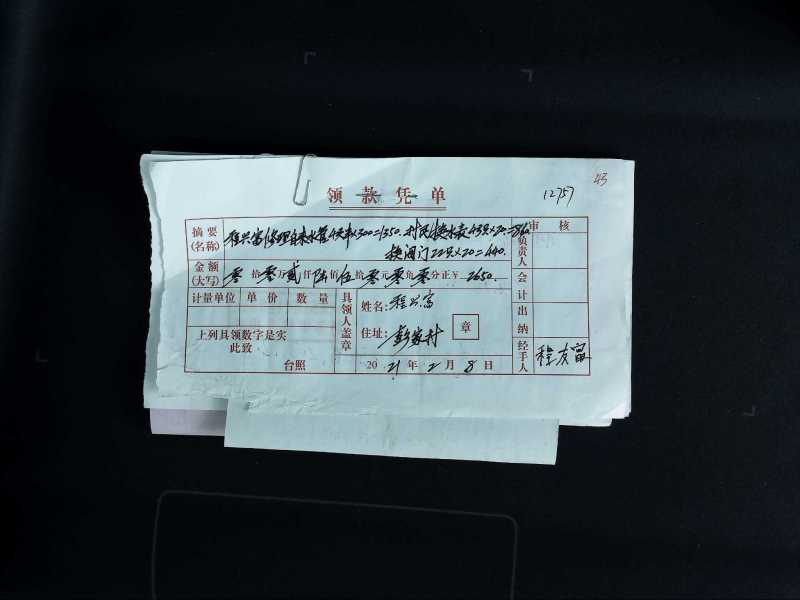 43
12757
领款凭单
摘要(名称) 程兴富修理自来水管4天半×300=1350. 村民换水表43只×20=860
换阀门22只×20=440.
金额(大写) 零拾零万贰仟陆佰伍拾零元零角零分正¥ 2650.
计量单位 单价 数量
上列具领数字是实
此致
台照
具领人盖章
姓名:程兴富
住址:彭家村 章
2021年2月8日
审核
负责人
会计
出纳
经手人 程友富